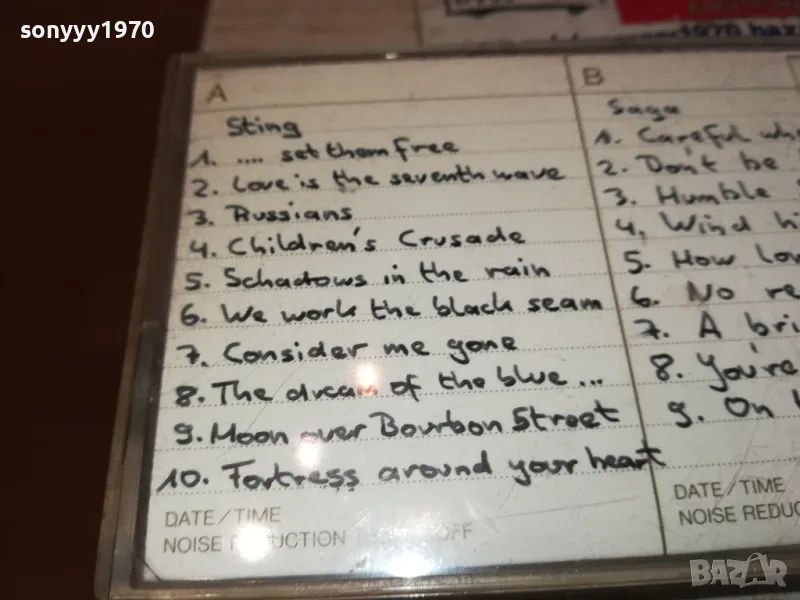 sonyyy1970
A
Sting
1. .... set them free
2. Love is the seventh wave
3. Russians
4. Children's Crusade
5. Schadows in the rain
6. We work the black seam
7. Consider me gone
8. The dream of the blue ...
9. Moon over Bourbon Street
10. Fortress around your heart
DATE/TIME
NOISE REDUCTION OFF
B
Saga
1. Careful
2. Don't be
3. Humble
4. Wind
5. How
6. No
7. A
8. You're
9. On
DATE/TIME
NOISE
BAZAR